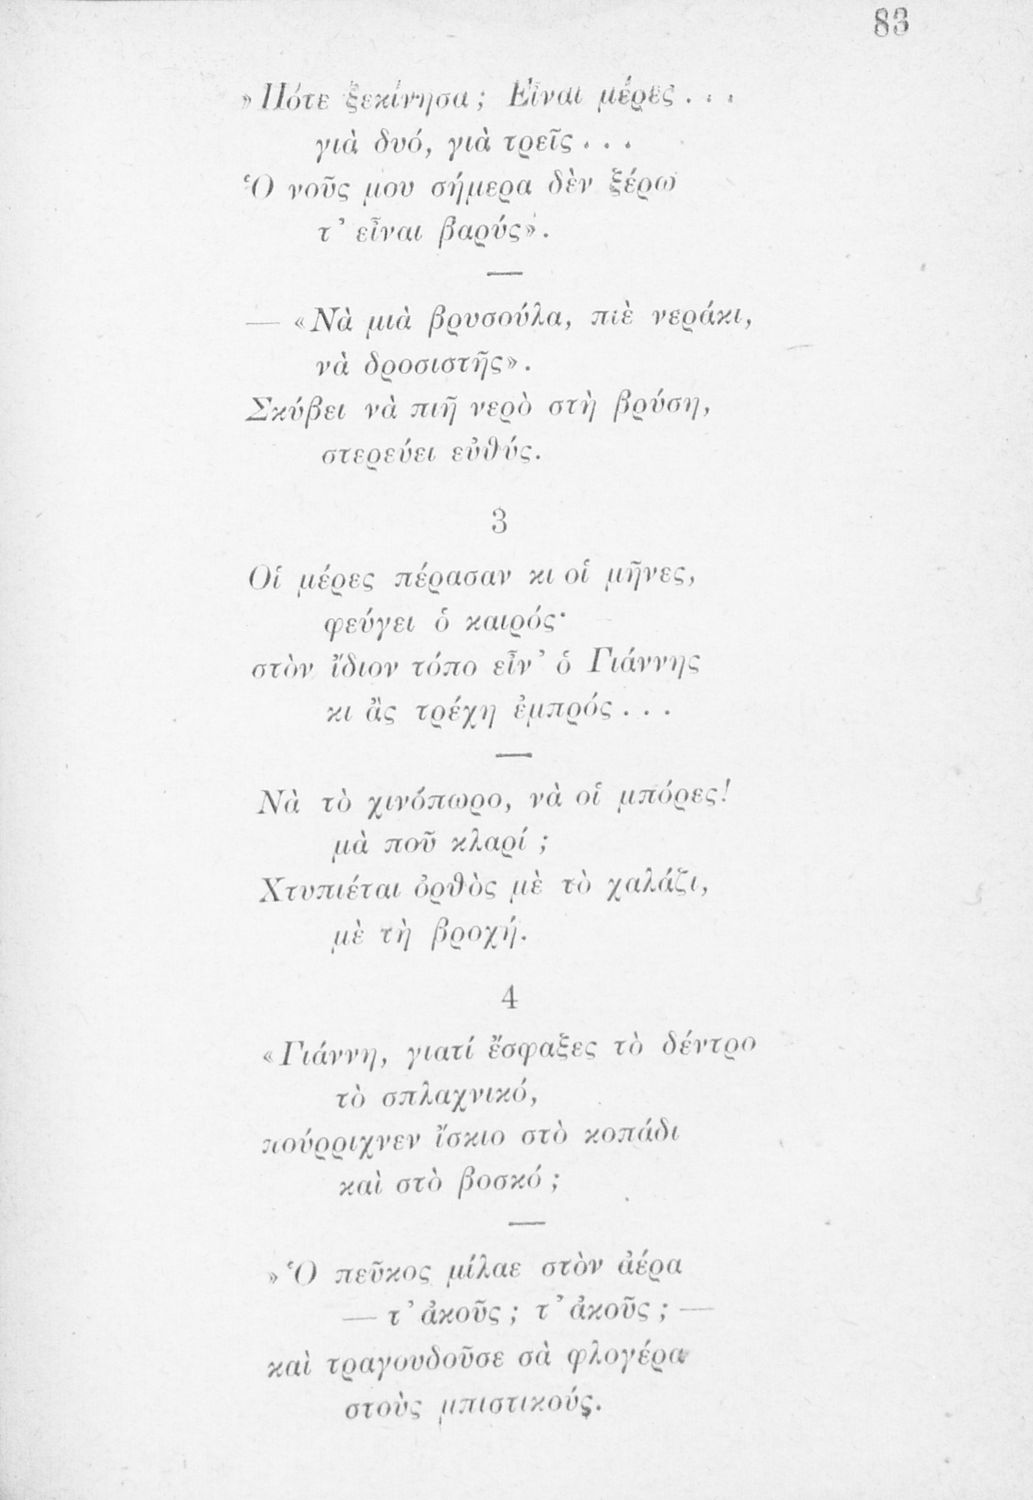 83
» Πότε ξεκίνησα ; Εἶναι μέρες . . .
γιὰ δυό, γιὰ τρεῖς . . .
Ὁ νοῦς μου σήμερα δὲν ξέρω
τ’ εἶναι βαρύς».
— «Νὰ μιὰ βρυσούλα, πιὲ νεράκι,
νὰ δροσιστῆς».
Σκύβει νὰ πιῆ νερὸ στὴ βρύση,
στερεύει εὐθύς.
3
Οἱ μέρες πέρασαν κι οἱ μῆνες,
φεύγει ὁ καιρός·
στὸν ἴδιον τόπο εἶν’ ὁ Γιάννης
κι ἂς τρέχη ἐμπρός . . .
Νὰ τὸ χινόπωρο, νὰ οἱ μπόρες!
μὰ ποῦ κλαρί ;
Χτυπιέται ὀρθὸς μὲ τὸ χαλάζι,
μὲ τὴ βροχή.
4
«Γιάννη, γιατί ἔσφαξες τὸ δέντρο
τὸ σπλαχνικό,
πούρριχνεν ἴσκιο στὸ κοπάδι
καὶ στὸ βοσκό ;
» Ὁ πεῦκος μίλαε στὸν ἀέρα
— τ’ ἀκοῦς ; τ’ ἀκοῦς ; —
καὶ τραγουδοῦσε σὰ φλογέρα
στοὺς μπιστικούς.